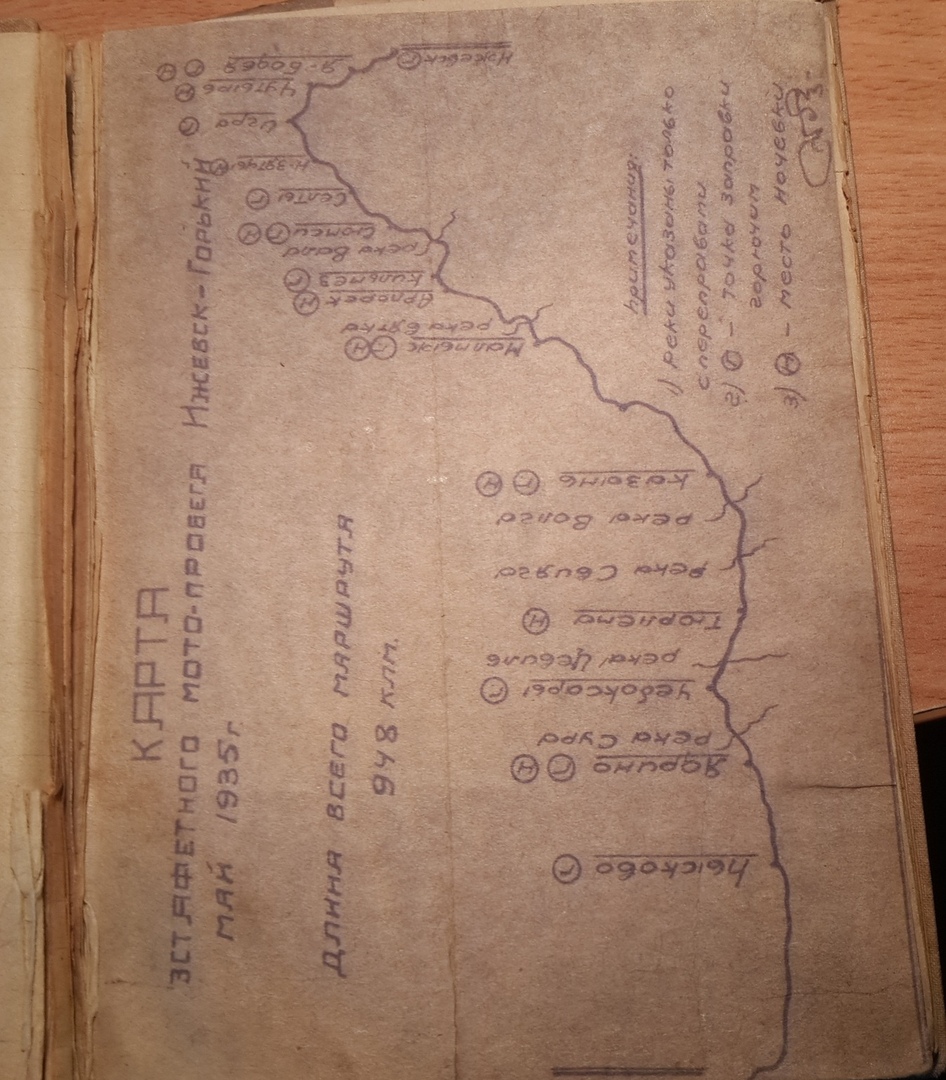 КАРТА
ЭСТАФЕТНОГО МОТО-ПРОБЕГА ИЖЕВСК-ГОРЬКИЙ
МАЙ 1935г.
ДЛИНА ВСЕГО МАРШРУТА
948 КЛМ.
Ижевск Г
Я-Бодья Г Н
Чутырь Н
Игра Г
Н-Зятцы Н
Селты Г
Сюмси Г Н
река Вала
Кильмез Г
Арпорек Н
река Вятка
Малмыж Г Н
Казань Г Н
река Волга
река Свияга
Тюрлема Н
река Цевиль
Чебоксары Г
река Сура
Ядрино Г Н
Лысково Г
Примечания:
1) Реки указаны только
с переправами
2) Г - точка заправки
горючим
3) Н - место ночевки